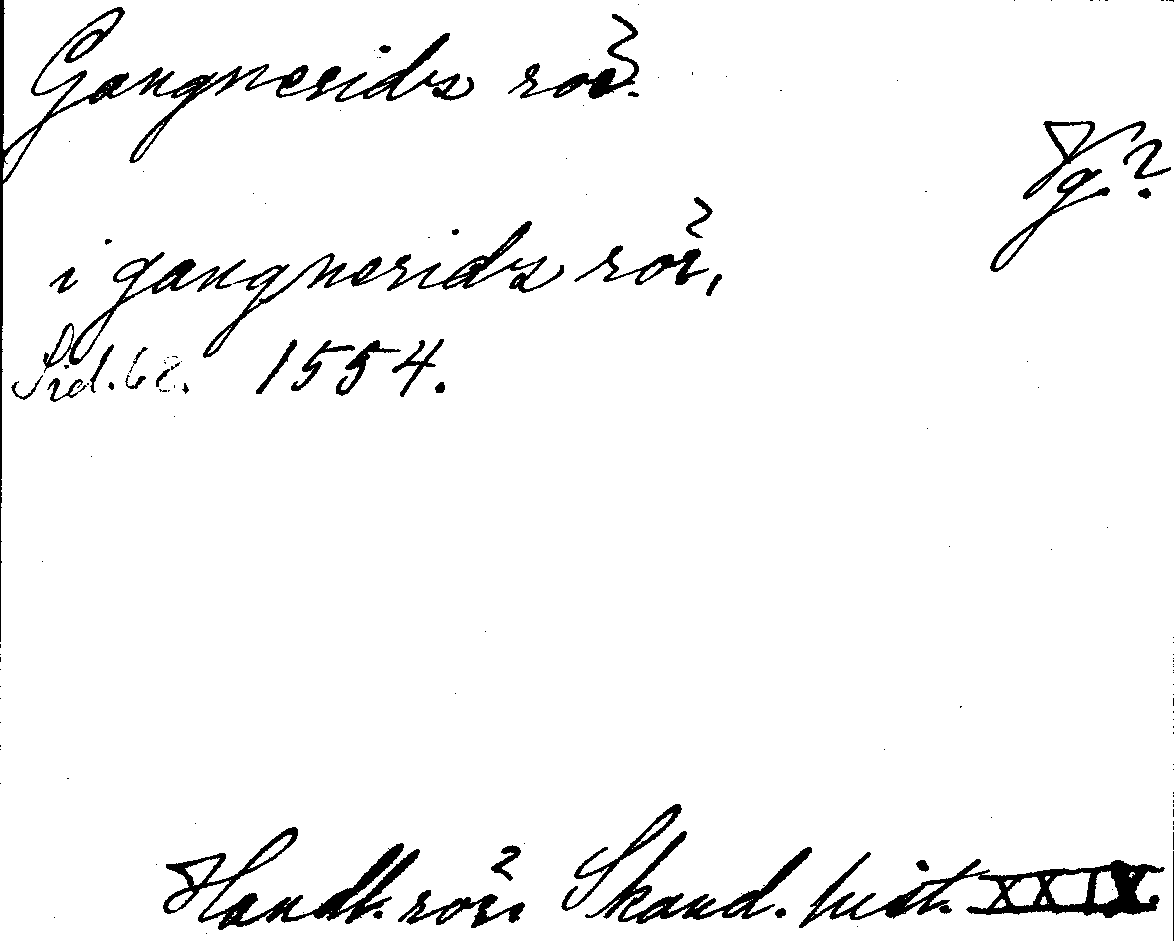 Gangnerids roer.
Vg.?
i gangnerids roer,
Sid. 62. 1554.
Handl. rör. Skand. hist. XXIX.